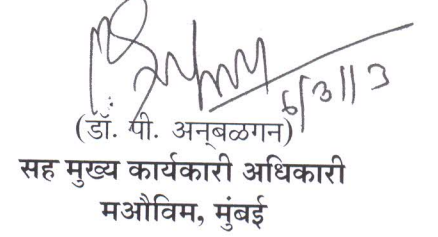 6/3/13
(डॉ. पी. अनबळगन)
सह मुख्य कार्यकारी अधिकारी
मऔविम, मुंबई